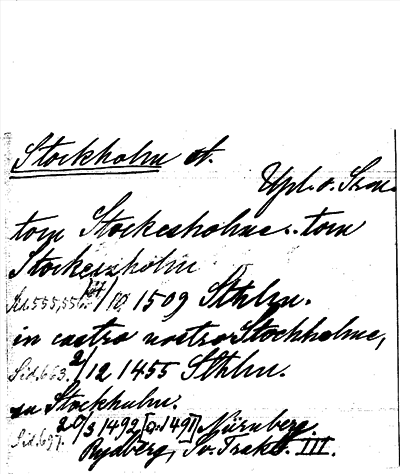 Stockholm st.
Upl. o. Södm.
tom Stockesholme. tom
Stockeszholm
Sid. 555, 556. /10 1509 Sthlm.
in castro nostro Stockholme,
Sid. 663. 2/12 1455 Sthlm.
zu Stockholm.
Sid. 697. 20/3 1492 [o. 1491] Nürnberg.
Rydberg, Sv. Trakt. III.